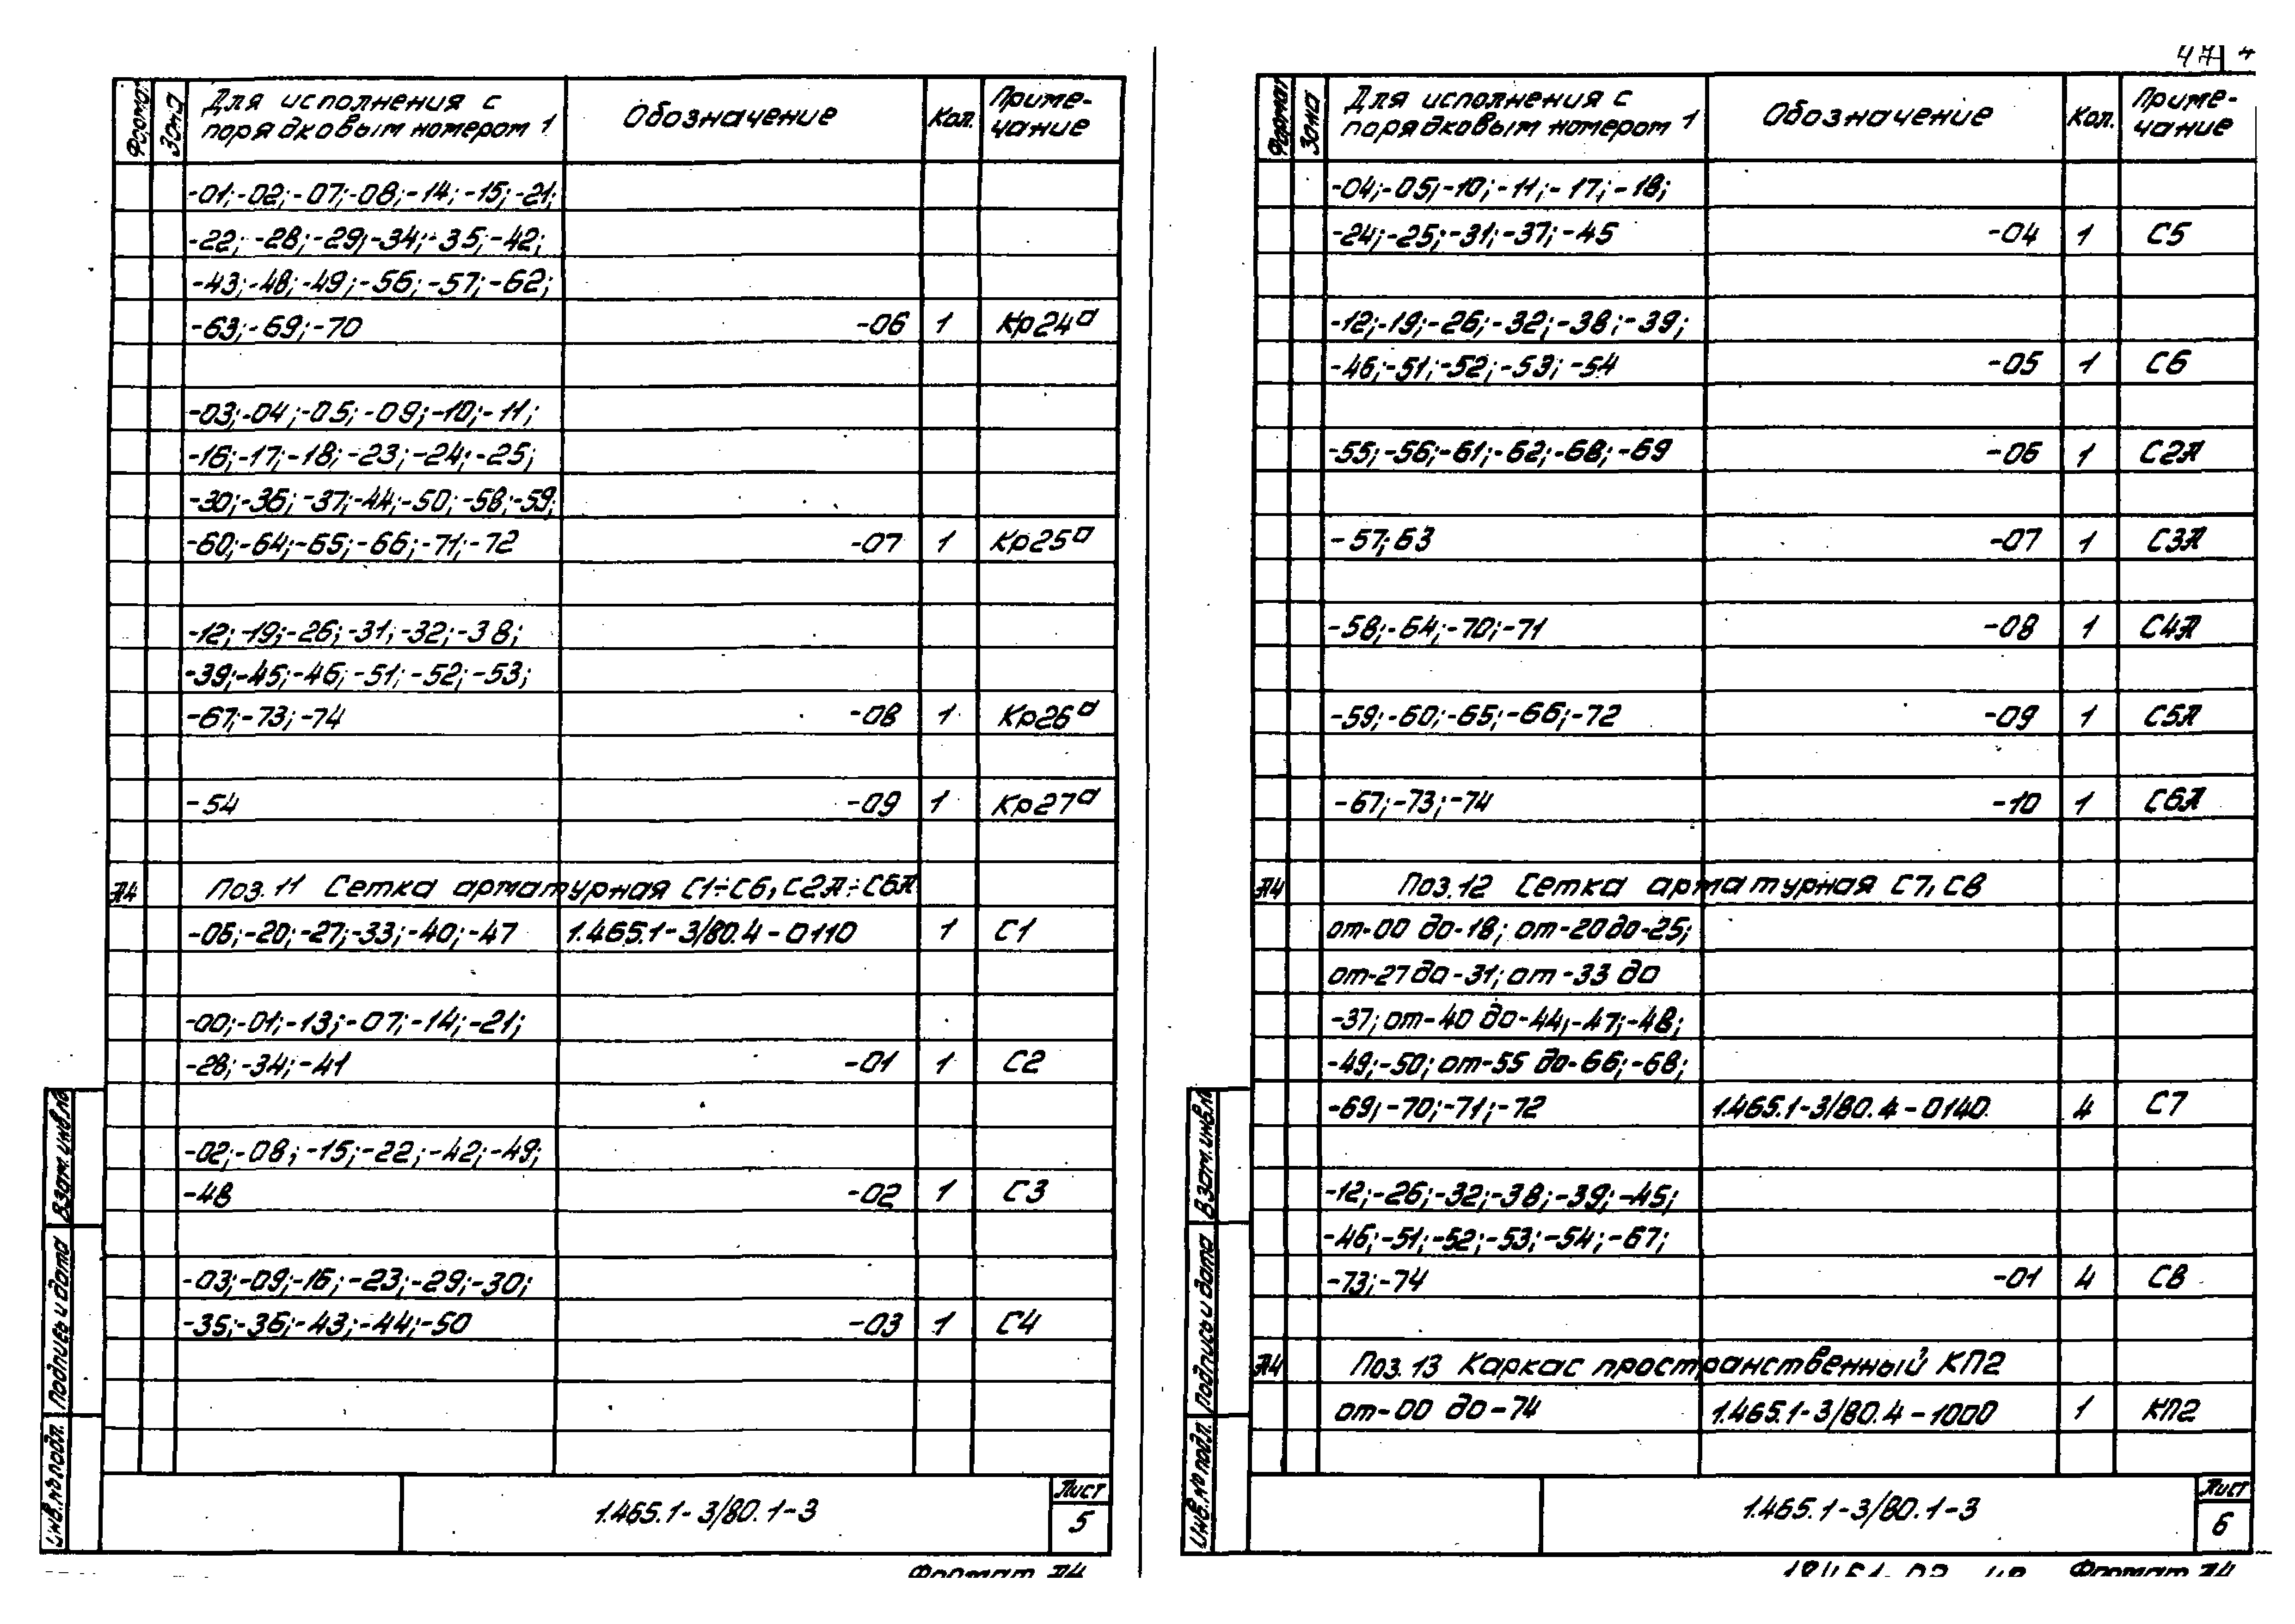 47
Формат Зона Для исполнения с порядковым номером 1 Обозначение Кол. Примечание
-01;-02;-07;-08;-14;-15;-21;
-22;-28;-29;-34;-35;-42;
-43;-48;-49;-56;-57;-62;
-63;-69;-70 -06 1 Кр24а
-03;-04;-05;-09;-10;-11;
-16;-17;-18;-23;-24;-25;
-30;-36;-37;-44;-50;-58;-59;
-60;-64;-65;-66;-71;-72 -07 1 Кр25а
-12;-19;-26;-31;-32;-38;
-39;-45;-46;-51;-52;-53;
-67;-73;-74 -08 1 Кр26а
-54 -09 1 Кр27а
А4 Поз. 11 Сетка арматурная С1÷С6, С2А÷С6А
-06;-20;-27;-33;-40;-47 1.465.1-3/80.4-0110 1 С1
-00;-01;-13;-07;-14;-21;
-28;-34;-41 -01 1 С2
-02;-08;-15;-22;-42;-49;
-48 -02 1 С3
-03;-09;-16;-23;-29;-30;
-35;-36;-43;-44;-50 -03 1 С4
Инв.№ подл. Подпись и дата Взам.инв.№
1.465.1-3/80.1-3
Лист
5
Формат А4
Формат Зона Для исполнения с порядковым номером 1 Обозначение Кол. Примечание
-04;-05;-10;-11;-17;-18;
-24;-25;-31;-37;-45 -04 1 С5
-12;-19;-26;-32;-38;-39;
-46;-51;-52;-53;-54 -05 1 С6
-55;-56;-61;-62;-68;-69 -06 1 С2А
-57;63 -07 1 С3А
-58;-64;-70;-71 -08 1 С4А
-59;-60;-65;-66;-72 -09 1 С5А
-67;-73;-74 -10 1 С6А
А4 Поз.12 Сетка арматурная С7, С8
от-00 до-18; от-20 до-25;
от-27 до-31; от-33 до
-37; от-40 до-44,-47;-48;
-49;-50; от-55 до-66;-68;
-69;-70;-71;-72 1.465.1-3/80.4-0140 4 С7
-12;-26;-32;-38;-39;-45;
-46;-51;-52;-53;-54;-67;
-73;-74 -01 4 С8
А4 Поз. 13 Каркас пространственный КП2
от-00 до-74 1.465.1-3/80.4-1000 1 КП2
Инв.№ подл. Подпись и дата Взам.инв.№
1.465.1-3/80.1-3
Лист
6
Формат А4